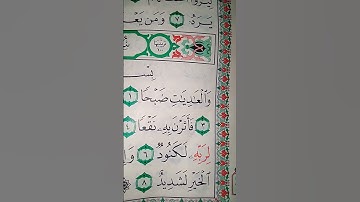 يَرَهُۥ ٧ وَمَن يَعْـ
بِسْـ
وَٱلْعَٰدِيَٰتِ ضَبْحًا ١
٣ فَأَثَرْنَ بِهِۦ نَقْعًا ٤
لِرَبِّهِۦ لَكَنُودٌ ٦ وَإِ
ٱلْخَيْرِ لَشَدِيدٌ ٨